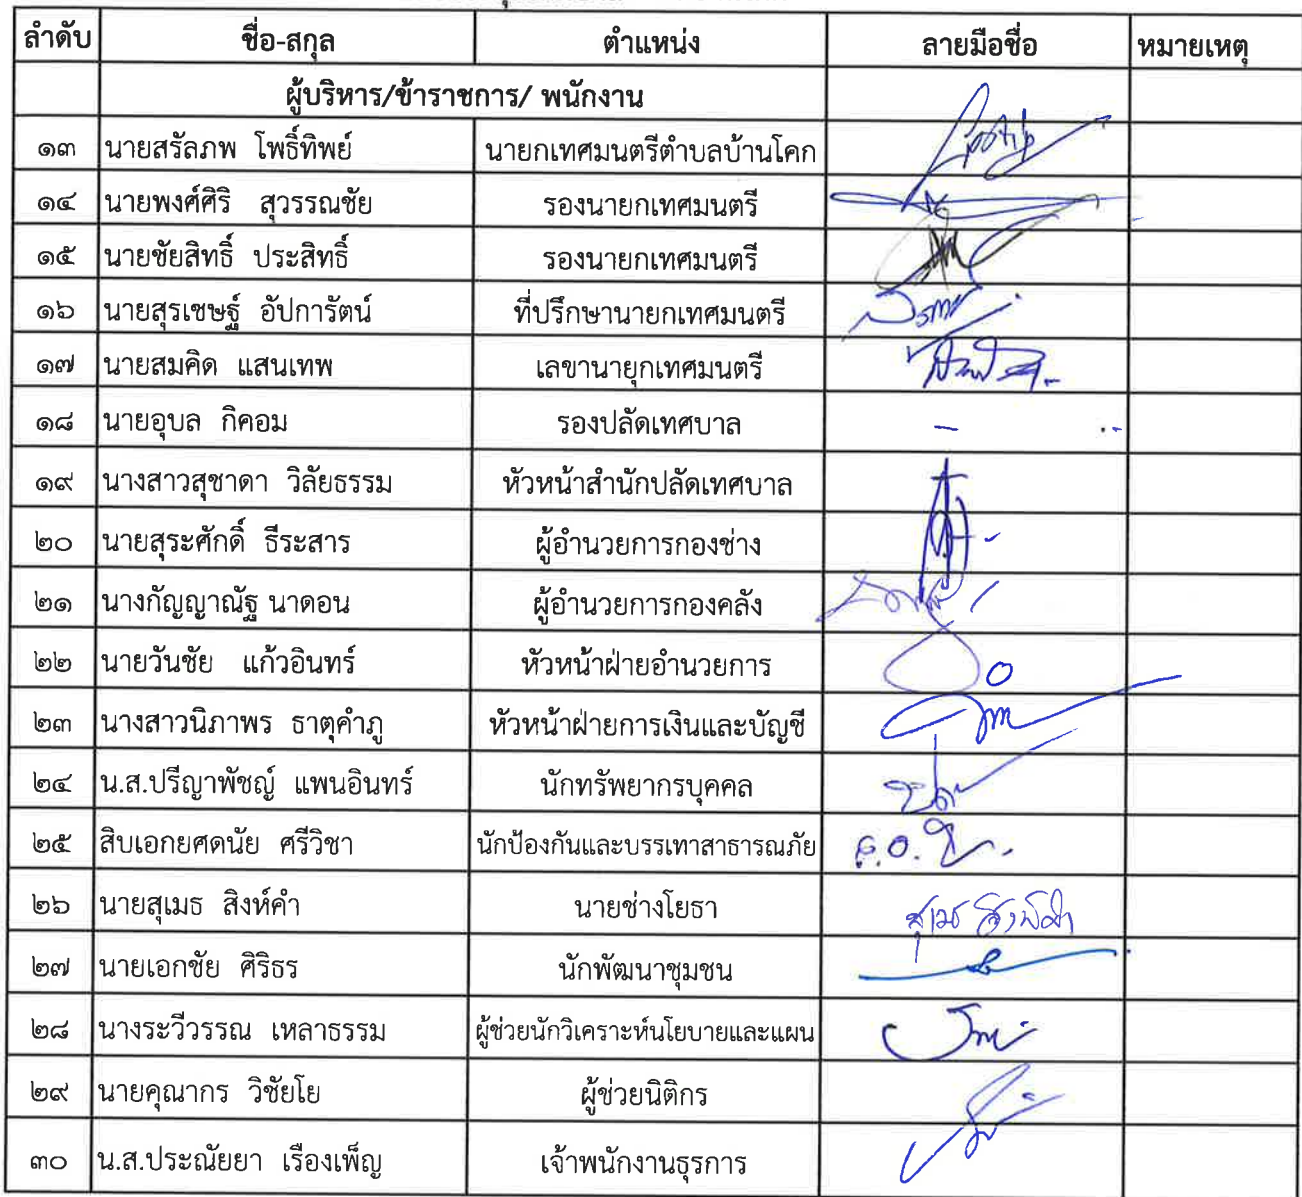 ลำดับ ชื่อ-สกุล ตำแหน่ง ลายมือชื่อ หมายเหตุ
ผู้บริหาร/ข้าราชการ/ พนักงาน
๑๓ นายสรัลภพ โพธิ์ทิพย์ นายกเทศมนตรีตำบลบ้านโคก
๑๔ นายพงศ์ศิริ สุวรรณชัย รองนายกเทศมนตรี
๑๕ นายชัยสิทธิ์ ประสิทธิ์ รองนายกเทศมนตรี
๑๖ นายสุรเชษฐ์ อัปการัตน์ ที่ปรึกษานายกเทศมนตรี
๑๗ นายสมคิด แสนเทพ เลขานายุกเทศมนตรี
๑๘ นายอุบล กิคอม รองปลัดเทศบาล -
๑๙ นางสาวสุชาดา วิลัยธรรม หัวหน้าสำนักปลัดเทศบาล
๒๐ นายสุระศักดิ์ ธีระสาร ผู้อำนวยการกองช่าง
๒๑ นางกัญญาณัฐ นาดอน ผู้อำนวยการกองคลัง
๒๒ นายวันชัย แก้วอินทร์ หัวหน้าฝ่ายอำนวยการ
๒๓ นางสาวนิภาพร ธาตุคำภู หัวหน้าฝ่ายการเงินและบัญชี
๒๔ น.ส.ปรีญาพัชญ์ แพนอินทร์ นักทรัพยากรบุคคล
๒๕ สิบเอกยศดนัย ศรีวิชา นักป้องกันและบรรเทาสาธารณภัย
๒๖ นายสุเมธ สิงห์คำ นายช่างโยธา สุเมธ สิงห์คำ
๒๗ นายเอกชัย ศิริธร นักพัฒนาชุมชน
๒๘ นางระวีวรรณ เหลาธรรม ผู้ช่วยนักวิเคราะห์นโยบายและแผน
๒๙ นายคุณากร วิชัยโย ผู้ช่วยนิติกร
๓๐ น.ส.ประณัยยา เรืองเพ็ญ เจ้าพนักงานธุรการ